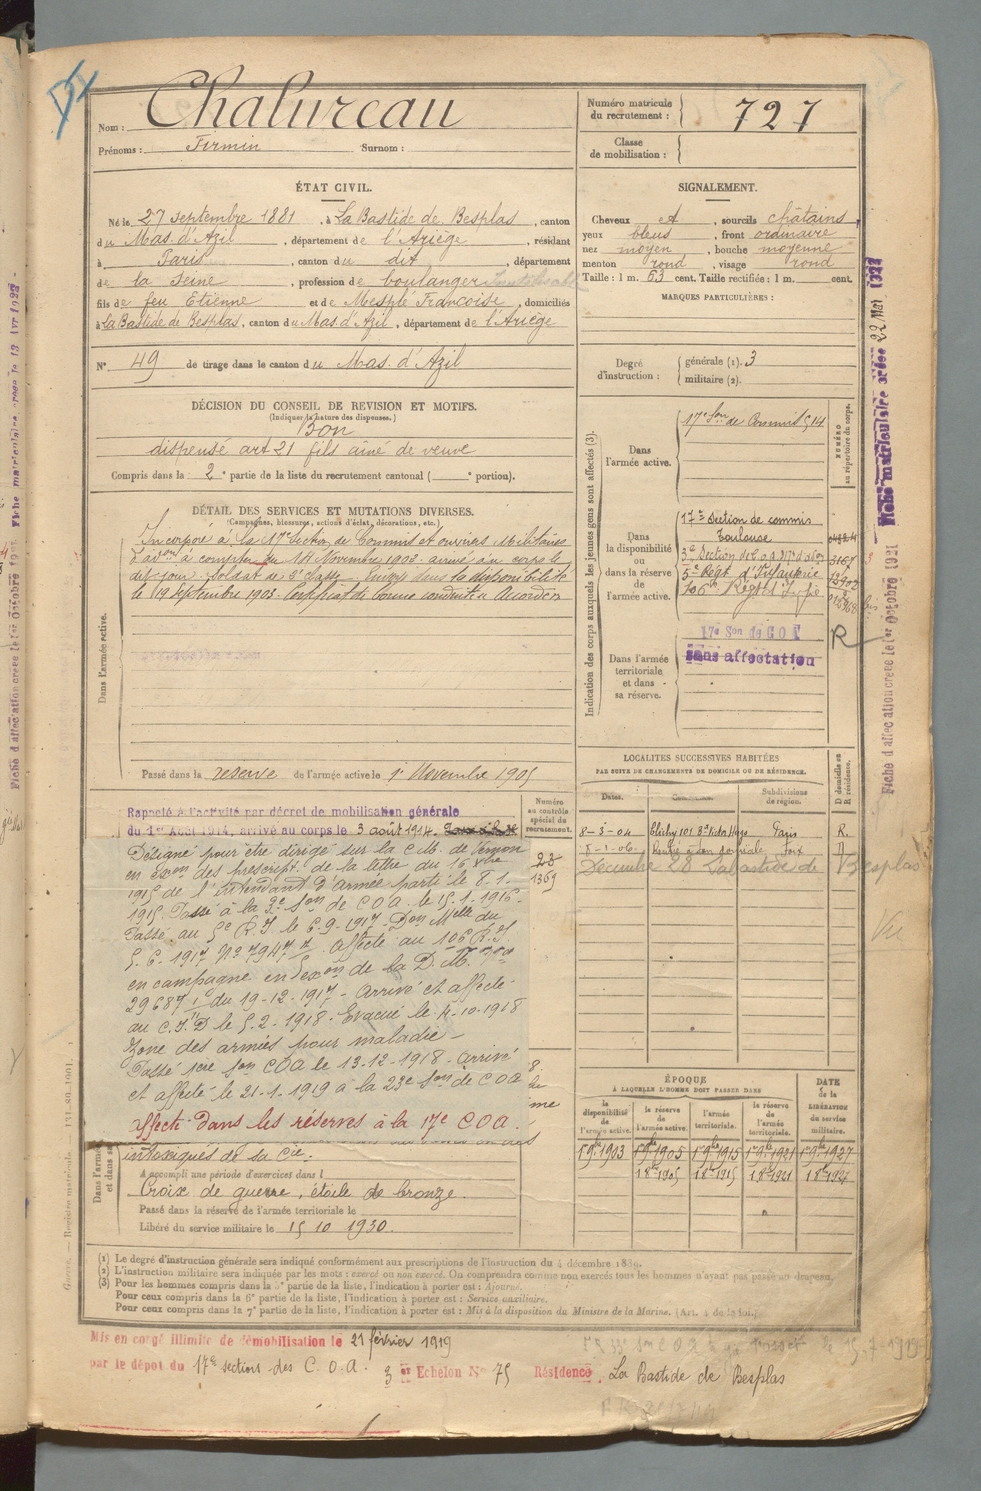 Nom : Chalureau
Prénoms : Firmin Surnom :
Numéro matricule du recrutement : 727
Classe de mobilisation :
ÉTAT CIVIL.
Né le 27 septembre 1881, à La Bastide de Besplas, canton
du Mas. d'Azil, département de l'Ariège, résidant
à Paris, canton du dit, département
de la Seine, profession de boulanger
fils de feu Etienne et de Mesplé Françoise, domiciliés
à La Bastide de Besplas, canton du Mas. d'Azil, département de l'Ariège
N° 49 de tirage dans le canton du Mas. d'Azil
SIGNALEMENT.
Cheveux et, sourcils châtains
yeux bleus, front ordinaire
nez moyen, bouche moyenne
menton rond, visage rond
Taille : 1 m. 63 cent. Taille rectifiée : 1 m. cent.
MARQUES PARTICULIÈRES :
Degré d'instruction : générale (1). 3
militaire (2).
DÉCISION DU CONSEIL DE REVISION ET MOTIFS.
(Indiquer la nature des dispenses.)
Bon
dispensé art 21 fils aîné de veuve
Compris dans la 2e partie de la liste du recrutement cantonal ( e portion).
DÉTAIL DES SERVICES ET MUTATIONS DIVERSES.
(Campagnes, blessures, actions d'éclat, décorations, etc.)
Dans l'armée active.
Incorporé à la 17e Section de Commis et ouvriers Militaires
d'adon à compter du 14 Novembre 1902. arrivé au corps le
dit jour. Soldat de 2e classe. Envoyé dans la disponibilité
le 19 septembre 1903. Certificat de bonne conduite Accordé
Passé dans la réserve de l'armée active le 1er Novembre 1905
Indication des corps auxquels les jeunes gens sont affectés (3).
NUMÉRO au répertoire du corps.
Dans l'armée active.
17e Son de Commis 514
Dans la disponibilité ou dans la réserve de l'armée active.
17e Section de commis
Toulouse
3167
5e Régt d'Infanterie
106e Régt d'Infie
Dans l'armée territoriale et dans sa réserve.
17e Son de COA
sans affectation
R
Rappelé à l'activité par décret de mobilisation générale
du 1er Août 1914, arrivé au corps le 3 août 1914.
Désigné pour être dirigé sur la C.M. de Vernon
en exon des prescript. de la lettre du 16 Xbre
1915 de l'intendant d'armée parti le 8-1-
1915. Passé à la 3e Son de COA. le 15-1-1916-
Passé au 5e R.I. le 6-9-1917. Don Melle du
5.6.1917 No 7947. Affecté au 106 R.I
en campagne en exon de la D.M.
29687 du 19-12-1917- Arrivé et affecté
au C.I.D le 5-2-1918- Evacué le 4-10-1918
Zone des armées pour maladie-
Passé 1ere Son COA le 13-12-1918- arrivé
et affecté le 21-1-1919 à la 23e Son de COA
affecté dans les réserves à la 17e COA.
intoxiqués de sa Cie.
A accompli une période d'exercices dans l
Croix de guerre, étoile de bronze.
Passé dans la réserve de l'armée territoriale le
Libéré du service militaire le 15 10 1930.
Numéro au contrôle spécial du recrutement.
23
1369
LOCALITES SUCCESSIVES HABITÉES
PAR SUITE DE CHANGEMENTS DE DOMICILE OU DE RÉSIDENCE.
Dates. Communes. Subdivisions de région. D domicile ou R résidence.
8-3-04 Clichy 101 Bd Victor Hugo Paris R.
X-1-06. Rentré à son domicile Foix D
Décembre 28 Labastide de Besplas
Vu
ÉPOQUE
À LAQUELLE L'HOMME DOIT PASSER DANS
la disponibilité de l'armée active. la réserve de l'armée active. l'armée territoriale. la réserve de l'armée territoriale. DATE de la LIBÉRATION du service militaire.
1 9bre 1903 1 9bre 1905 1 9bre 1915 1 9bre 1921 1 9bre 1927
1 8bre 1905 1 8bre 1915 1 8bre 1921 1 8bre 1927
(1) Le degré d'instruction générale sera indiqué conformément aux prescriptions de l'instruction du 4 décembre 1889.
(2) L'instruction militaire sera indiquée par les mots : exercé ou non exercé. On comprendra comme non exercés tous les hommes n'ayant pas passé au drapeau.
(3) Pour les hommes compris dans la 5e partie de la liste, l'indication à porter est : Ajourné.
Pour ceux compris dans la 6e partie de la liste, l'indication à porter est : Service auxiliaire.
Pour ceux compris dans la 7e partie de la liste, l'indication à porter est : Mis à la disposition du Ministre de la Marine. (Art. 4 de la loi.)
Mis en congé illimité de démobilisation le 21 février 1919
par le dépot du 17e section des C.O.A. 3 er Echelon N° 75 Résidence. La Bastide de Besplas
Fiche matriculaire créée 22 Mai
Fiche d'affectation créée le 1er Octobre 1921